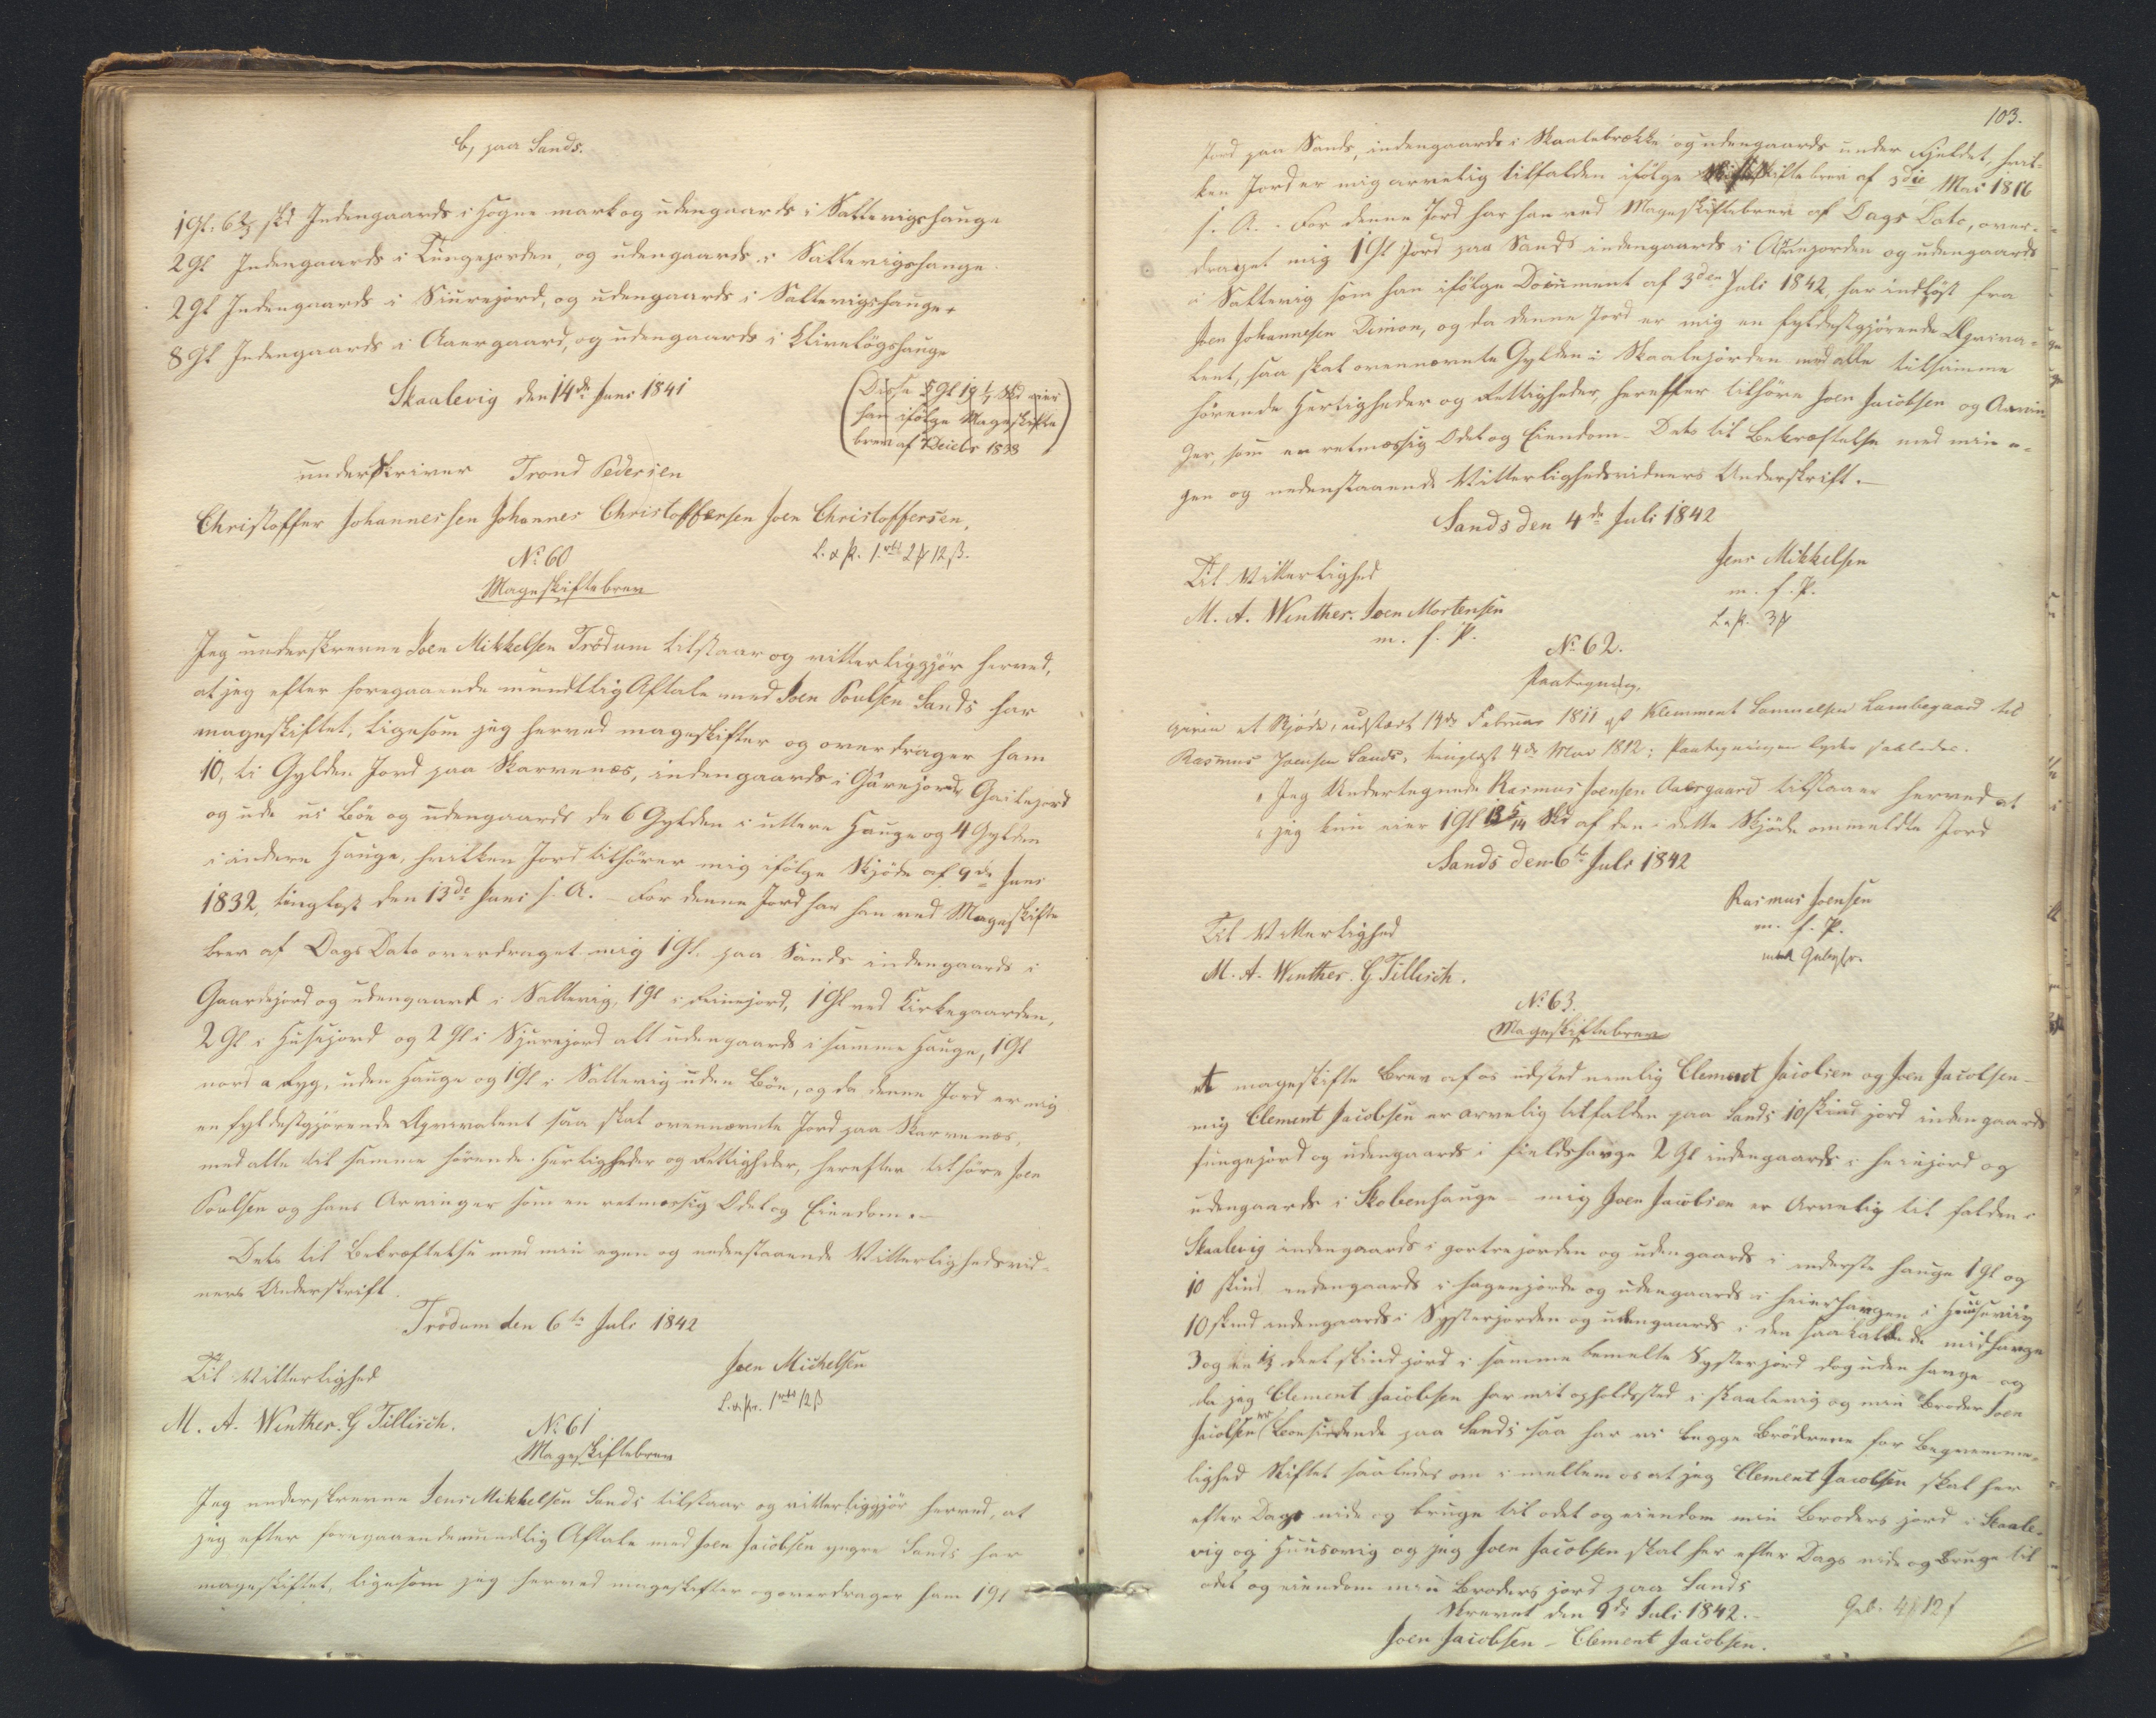 b, paa Sands.
1 Gl. 6 2/3 skd Indengaards i Hogne mark og udengaards i Saltevigshauge
2 Gl Indengaards i Tüngejorden, og udengaards i Saltevigshauge.
2 Gl Indengaards i Siurejord, og udengaards i Saltevigshauge.
8 Gl Indengaards i Aaergaard, og udengaards i Klivelögshauge
Skaalevig den 14de Juni 1841
(Disse Gl Skd eier
han ifölge Mageskifte
brev af Decbr 1838)
underskriver Trond Pedersen
Christoffer Johannessen Johannes Christoffersen Joen Christoffersen.
No 60
L. & P. 1 rbd 2 ₻ 12 ß.
Mageskiftebrev
Jeg underskrevne Joen Mikkelsen Trödum tilstaar og vitterliggjör herved,
at jeg efter foregaaende mundtlig Aftale med Joen Poulsen Sands har
mageskiftet, ligesom jeg herved mageskifter og overdrager ham
10, ti Gylden Jord paa Skarvenæs, indengaards i Gailejord
og ude ui Böe og udengaards de 6 Gylden i uttere Hauge og 4 Gylden
i indere Hauge, hvilken Jord tilhörer mig ifölge Skjöde af 9de Juni
1832, tinglæst den 13de Juni s. A. – For denne Jord har han ved Mageskifte
brev af Dags Dato overdraget mig 1 Gl. paa Sands indengaards i
Gaardejord og udengaard i Saltevig, 1 Gl i Keinejord, 1 Gl ved Kirkegaarden,
2 Gl i Husejord og 2 Gl i Sjurejord alt udengaards i samme Hauge, 1 Gl
nord a Ryg, uden Hauge og 1 Gl i Saltevig uden Böe, og da denne Jord er mig
en fyldestgjörende Æqvivalent saa skal ovennævnte Jord paa Skarvenæs,
med alle til samme hörende Herligheder og Rettigheder, herefter tilhöre Joen
Poulsen og hans Arvinger som en retmæssig Odel og Eiendom. –
Dets til Bekræftelse med min egen og nedenstaaende Vitterlighedsvid-
ners Underskrift.
Trödum den 6te Juli 1842
Til Vitterlighed
Joen Michelsen
L. & P. 1 rbd 12 ß
M. A. Winther. G Tillisch.
No 61
Mageskiftebrev
Jeg underskrevne Jens Mikkelsen Sands tilstaar og vitterliggjör herved, at
jeg efter foregaaende mundtlig Aftale med Joen Jacobsen yngre Sands har
mageskiftet, ligesom jeg herved mageskifter og overdrager ham 1 Gl
103.
Jord paa Sands, indengaards i Skaalebrække og udengaards under Fjeldet, hvil-
ken Jord er mig arvelig tilfalden ifölge Skiftebrev af 3die Mai 1816
s. A. For denne Jord har han ved Mageskiftebrev af Dags Dato, over-
draget mig 1 Gl Jord paa Sands indengaards i Askejorden og udengaards
i Saltevig som han ifölge Document af 3den Juli 1842, har indlöst fra
Joen Johannesen Dimon, og da denne Jord er mig en fyldestgjörende Æqviva-
lent, saa skal ovennævnte Gylden i Skaalejörden med alle tilsamme
hörende Herligheder og Rettigheder, herefter tilhöre Joen Jacobsen og Arvin
ger, som en retmæssig Odel og Eiendom. Dets til Bekræftelse med min e-
gen og nedenstaaende Vitterlighedsvidners Underskrift. –
Sands den 4de Juli 1842
Til Vitterlighed
Jens Mikkelsen
m. f. P.
M. A. Winther. Joen Mortensen
m. f. P.
L & P. 3 ₻
No 62.
Paategning,
given et Skjöde, udstædt 14de Februar 1811 af Klemment Samuelsen Lambegaard til
Rasmus Joensen Sands, tinglæst 4de Mar 1812; Paategningen lyder saaledes.
„ Jeg Undertegnede Rasmus Joensen Aaergaard tilstaaer herved at
„ jeg kun eier 1 Gl 5/14 Skd af den i dette Skjöde ommeldte Jord
Sands den 6te Juli 1842
Rasmus Joensen
m. f. P.
Til Vitterlighed
uden Gebyhr.
M. A. Winther. G Tillisch.
No 63.
Mageskiftebrev
et mageskifte Brev af os udsted nemlig Clement Jacobsen og Joen Jacobsen –
mig Clement Jacobsen er arvelig tilfalden paa Sands 10 skind jord indengaards
tungejord og udengaards i fieldshauge 2 Gl indengaards i heinjord og
udengaards i Skobenhauge – mig Joen Jacobsen er Arvelig til falden i
Skaalevig indengaards i gortrejorden og udengaards i inderste hauge 1 Gl og
10 skind indengaards i hagenjorde og udengaards i heiershaugen i Huusevig
10 skind indengaards i Systerjorden og udengaards i den saakaldede midhauge
3 og en 1/3 deel skind jord i samme bemelte Systerjord dog uden hauge – og
da jeg Clement Jacobsen har mit opholdsted i skaalevig og min Broder Joen
Jacobsen er Boesiddende paa Sands saa har vi begge Brödrene for Beqvemme-
lighed skiftet saaledes om i mellem os at jeg Clement Jacobsen skal her
efter Dags nide og bruge til odel og eiendom min Broders jord i Skaale-
vig og Huusevig og jeg Joen Jacobsen skal her efter Dags nide og Bruge til
odel og eiendom min Broders jord paa Sands
Skrevet den 9de Juli 1842. –
Geb. 4 ₻ 12 ß
Joen Jacobsen – Clement Jacobsen.